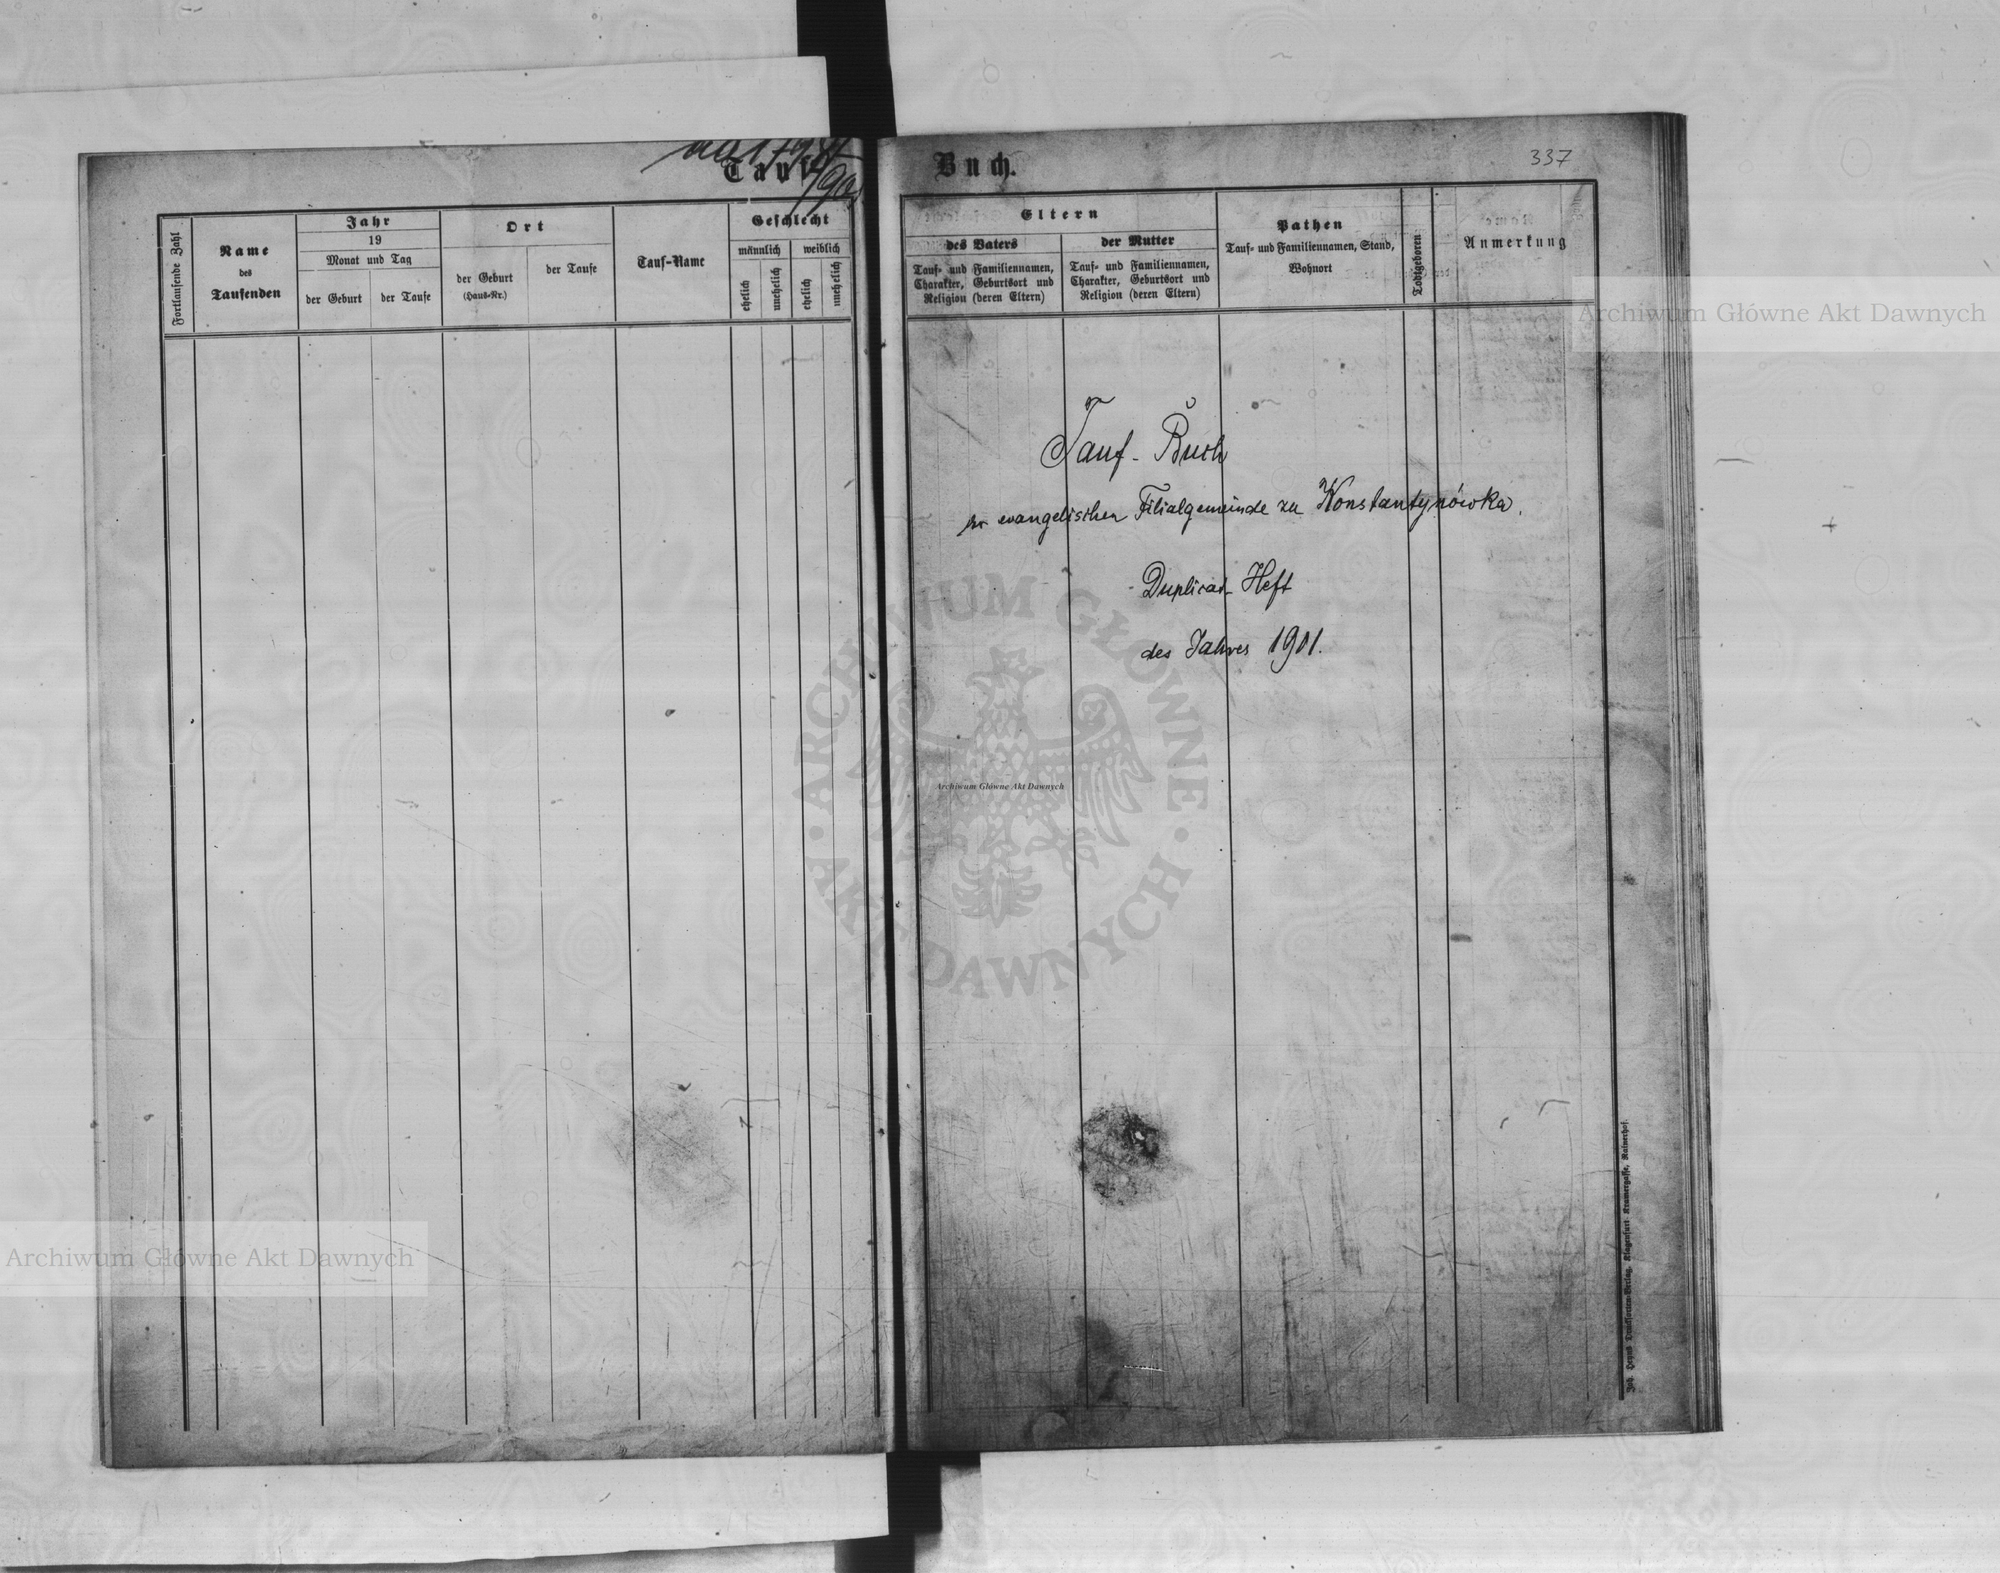 Tauf-
Buch.
337
Fortlaufende Zahl
Name
des
Taufenden
Jahr
19
Monat und Tag
der Geburt
der Taufe
Ort
der Geburt
(Haus-Nr.)
der Taufe
Tauf-Name
Geschlecht
männlich
weiblich
ehelich
unehelich
ehelich
unehelich
Eltern
des Vaters
Tauf- und Familiennamen,
Charakter, Geburtsort und
Religion (deren Eltern)
der Mutter
Tauf- und Familiennamen,
Charakter, Geburtsort und
Religion (deren Eltern)
Pathen
Tauf- und Familiennamen, Stand,
Wohnort
Todtgeboren
Anmerkung
Tauf-Buch
der evangelischen Filialgemeinde zu Konstantynówka.
Duplicat-Heft
des Jahres 1901.
Joh. Heyns Druckſorten-Verlag, Klagenfurt Kramergasse, Rainerhof.
Archiwum Główne Akt Dawnych
Archiwum Główne Akt Dawnych
Archiwum Główne Akt Dawnych
ARCHIWUM GŁÓWNE AKT DAWNYCH